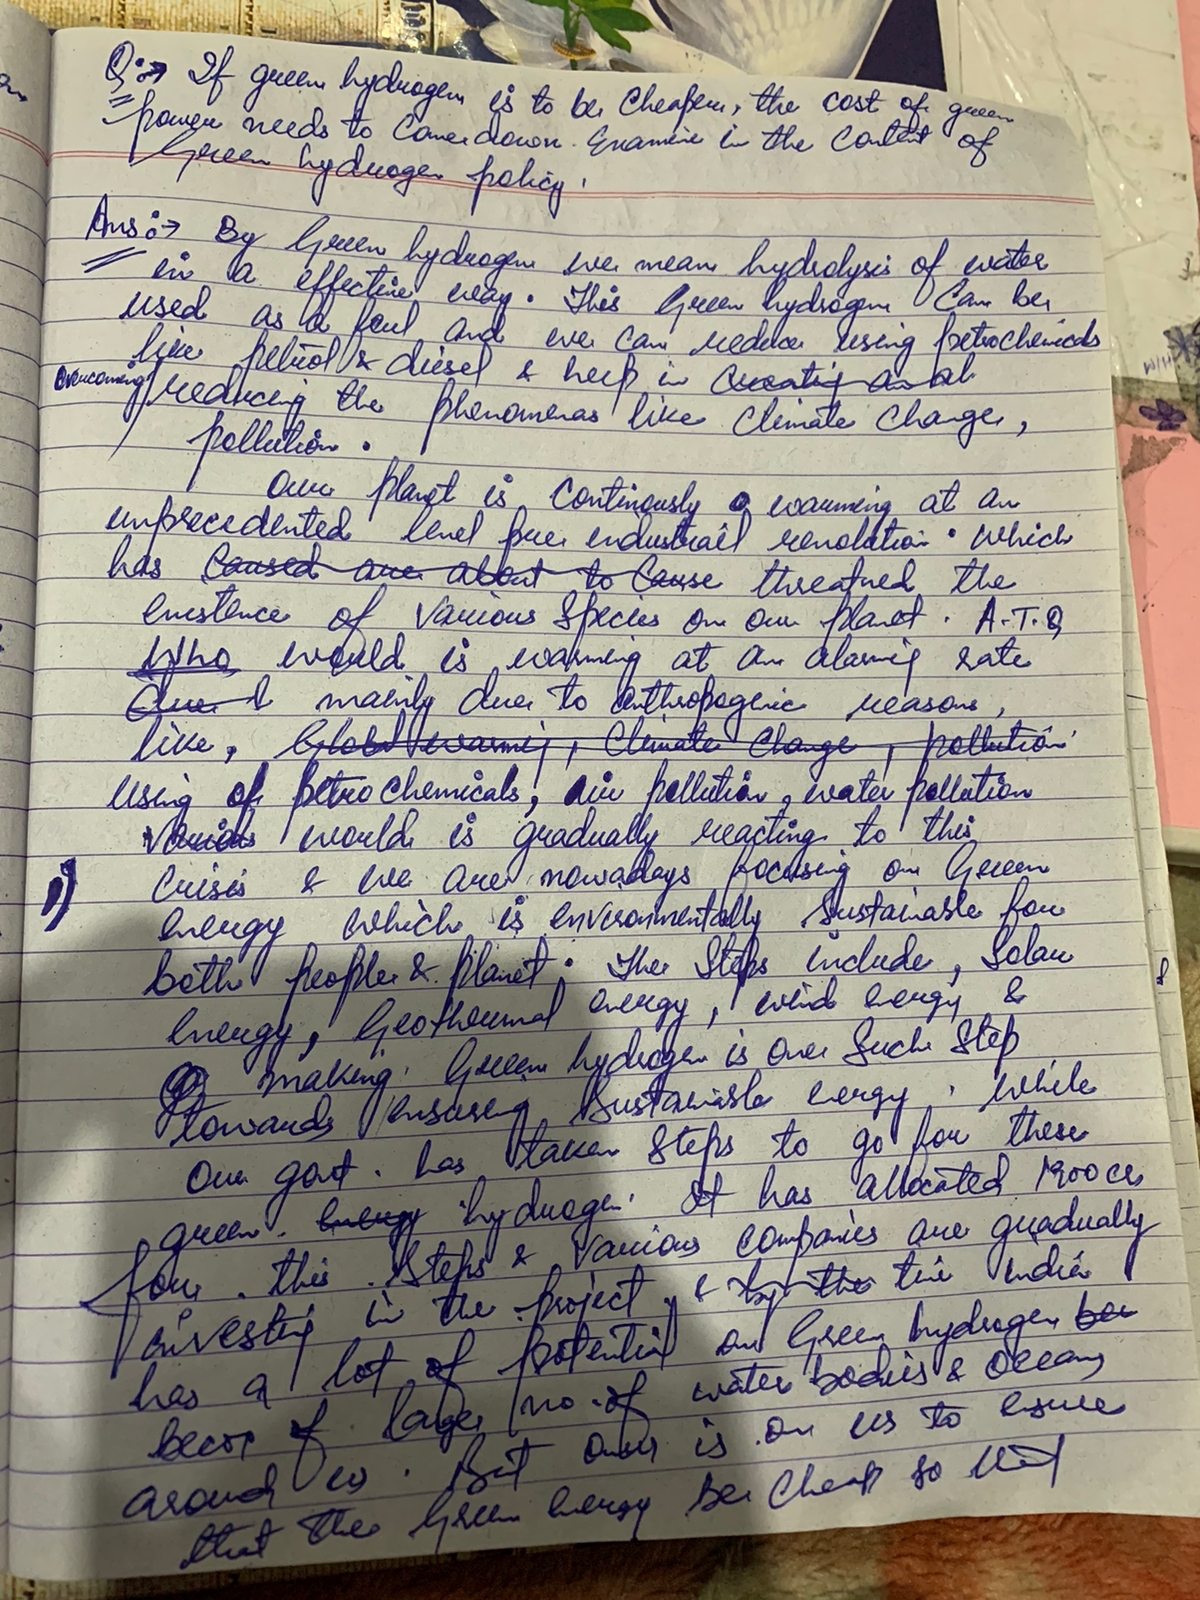 Q:→ If green hydrogen is to be cheaper, the cost of green
power needs to come down. Examine in the context of
Green hydrogen policy.
Ans:→ By Green hydrogen we mean hydrolysis of water
in a effective way. This Green hydrogen can be
used as a feul and we can reduce using petrochemicals
like petrol & diesel & help in creating an ab
overcoming/reducing the phenomenas like climate change,
pollution.
Our planet is continously warming at an
unprecedented level pre industrail revolution. Which
has caused are about to cause threatned the
existence of various species on our planet. A.T.Q
WHO world is warming at an alarmig rate
Due t mainly due to anthropogenic reasons,
like, Global warmig, climate change, pollution
using of petrochemicals, air pollution, water pollution
Various world is gradually reacting to this
1) crisis & we are nowadays focusing on Green
energy which is environmentally sustainable for
both people & planet. The steps include, Solar
energy, Geothermal energy, wind energy &
making Green hydrogen is one such step
towards ensuring sustainable energy. While
our govt. has taken steps to go for these
green energy hydrogen. It has allocated
for this steps & various companies are gradually
investig in the project & by the India
has a lot of potential on Green hydrogen be
becoz of large no. of water bodies & oceans
around us. But onus is on us to ensure
that the Green energy be cheap so that